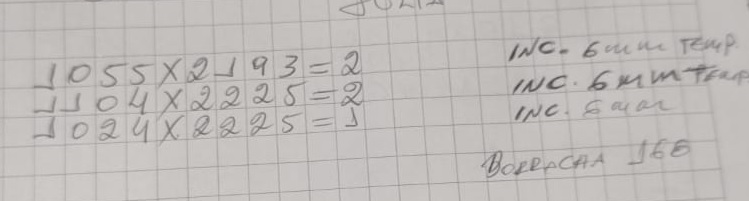 1055X2193=2 INC. 6mm TEMP.
1104X2225=2 INC. 6MM TEMP
1024X2225=1 INC. 6mm
BORRACHA 168